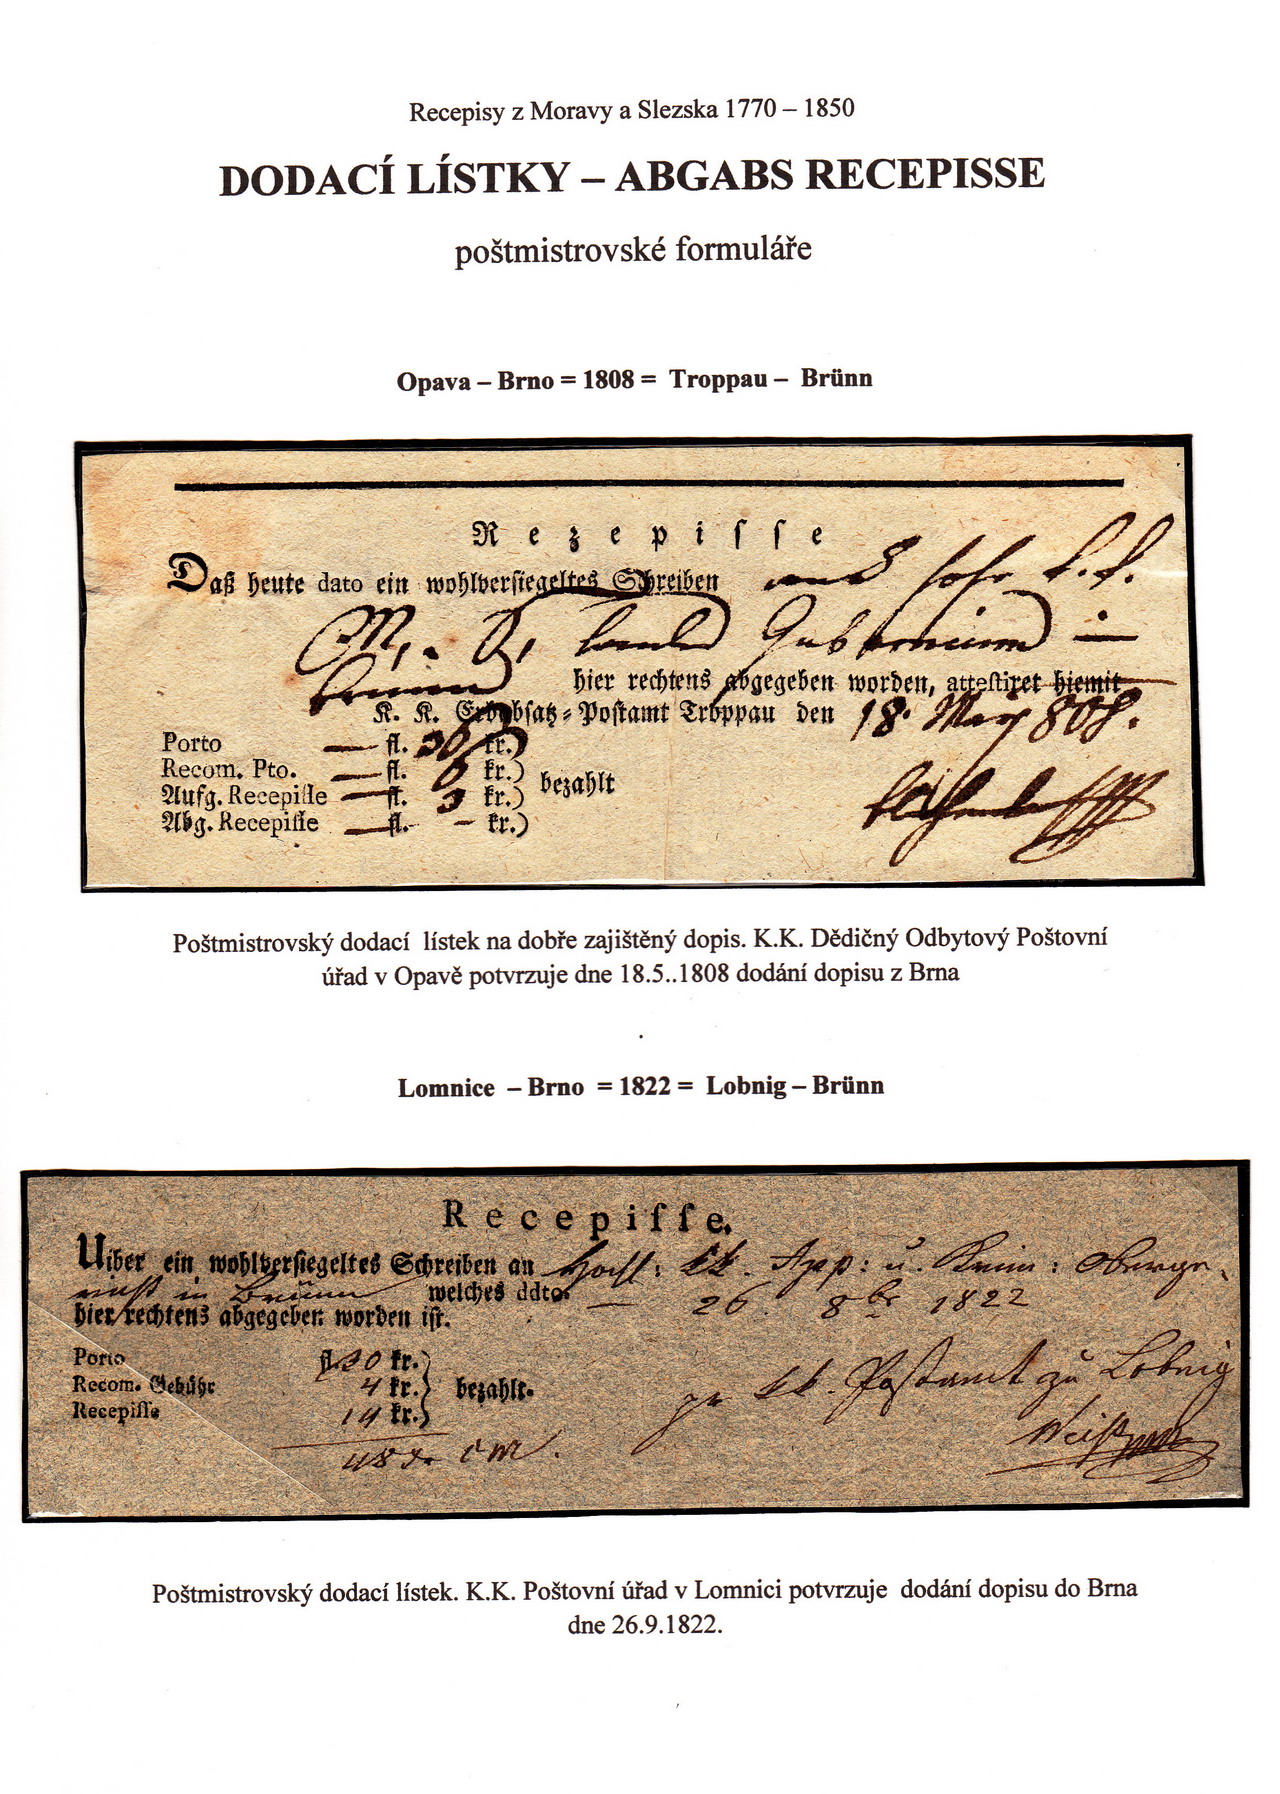 Recepisy z Moravy a Slezska 1770 – 1850
DODACÍ LÍSTKY – ABGABS RECEPISSE
poštmistrovské formuláře
Opava – Brno = 1808 = Troppau – Brünn
Rezepisse
Daß heute dato ein wohlversiegeltes Schreiben
Gubernium
hier rechtens abgegeben worden, attestiret hiemit
K. K. Erbabsatz-Postamt Troppau den 18. May 808.
Porto — fl. 36 kr.)
Recom. Pto. — fl. 6 kr.)
Aufg. Recepisse — fl. 3 kr.) bezahlt
Abg. Recepisse — fl. – kr.)
Poštmistrovský dodací lístek na dobře zajištěný dopis. K.K. Dědičný Odbytový Poštovní
úřad v Opavě potvrzuje dne 18.5..1808 dodání dopisu z Brna
Lomnice – Brno = 1822 = Lobnig – Brünn
Recepisse.
Uiber ein wohlversiegeltes Schreiben an Hochl: kk. App: u. Krim: Oberge-
richt in Brünn welches ddto. — 26. 8br 1822
hier rechtens abgegeben worden ist.
Porto fl. 30 kr.)
Recom. Gebühr 4 kr.) bezahlt.
Recepisse 14 kr.)
48 x. CM.
kk. Postamt zu Lobnig
Poštmistrovský dodací lístek. K.K. Poštovní úřad v Lomnici potvrzuje dodání dopisu do Brna
dne 26.9.1822.